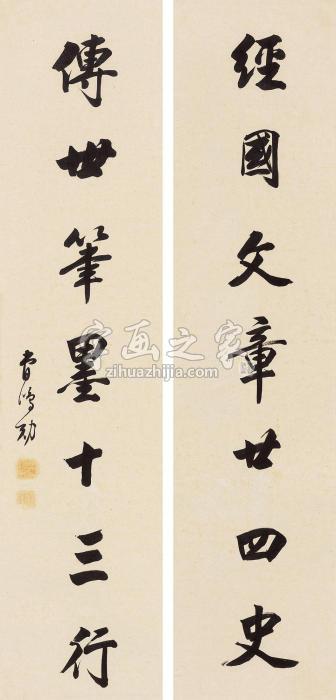 經國文章廿四史
傳世筆墨十三行
曹鴻勛
字画之家
zihuazhijia.com